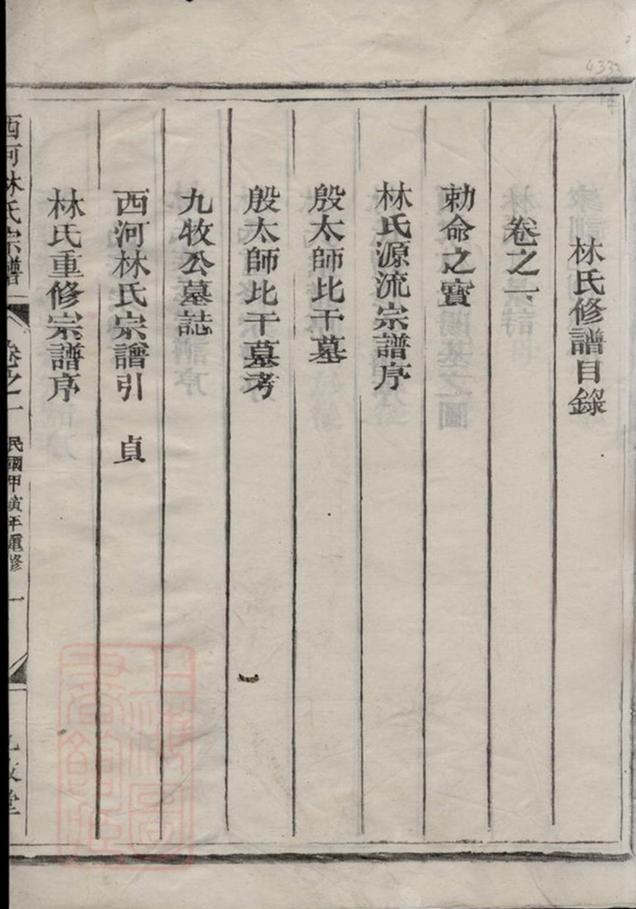 林氏修譜目錄
卷之一
勅命之寶
林氏源流宗譜序
殷太師比干墓
殷太師比干墓考
九牧公墓誌
西河林氏宗譜引 貞
林氏重修宗譜序
西河林氏宗譜 卷之一 民國甲寅年重修 一 九牧堂